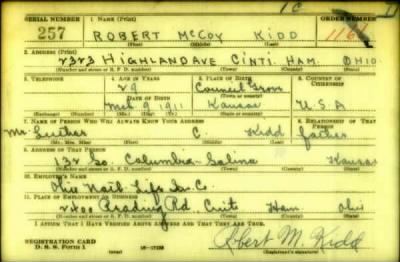 SERIAL NUMBER 1. NAME (Print) ORDER NUMBER
257 ROBERT McCOY KIDD
(First) (Middle) (Last)
2. ADDRESS (Print)
2323 HIGHLAND AVE CINTI. HAM. OHIO
(Number and street or R. F. D. number) (Town) (County) (State)
3. TELEPHONE 4. AGE IN YEARS 5. PLACE OF BIRTH 6. COUNTRY OF CITIZENSHIP
29 Council Grove
DATE OF BIRTH (Town or county)
9 1911 Kansas U.S.A
(Exchange) (Number) (Mo.) (Day) (Yr.) (State or country)
7. NAME OF PERSON WHO WILL ALWAYS KNOW YOUR ADDRESS 8. RELATIONSHIP OF THAT PERSON
Mr. Luther C. Kidd father
(Mr., Mrs., Miss) (First) (Middle) (Last)
9. ADDRESS OF THAT PERSON
132 So. Columbia Salina Kansas
(Number and street or R. F. D. number) (Town) (County) (State)
10. EMPLOYER'S NAME
Ohio Natl. Life Ins. Co.
11. PLACE OF EMPLOYMENT OR BUSINESS
2400 Reading Rd. Ham Ohio
(Number and street or R. F. D. number) (Town) (County) (State)
I AFFIRM THAT I HAVE VERIFIED ABOVE ANSWERS AND THAT THEY ARE TRUE.
REGISTRATION CARD
D. S. S. Form 1
Robert M. Kidd
(Registrant's signature)